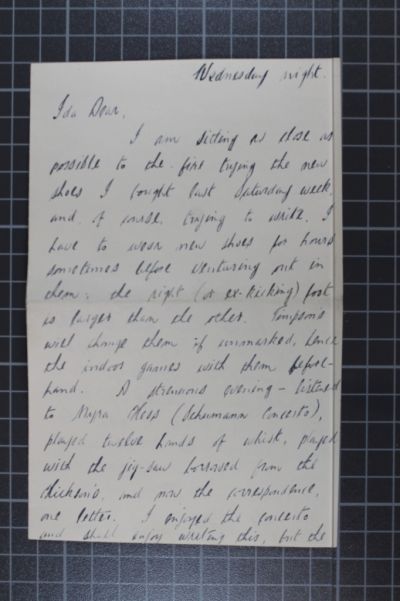 Wednesday night.
Ida Dear,
I am sitting as close as
possible to the fire trying the new
shoes I bought last Saturday week,
and, of course, trying to write. I
have to wear new shoes for hours
sometimes before venturing out in
them; the right (or ex-kicking) foot
is larger than the other. Simpsons
will change them if unmarked, hence
the indoor games with them before-
hand. A strenuous evening - listened
to Myra Hess (Schumann Concerto),
played twelve hands of whist, played
with the jig-saw borrowed from the
and now the correspondence,
one letter. I enjoyed the concerto
and shall enjoy writing this, but the